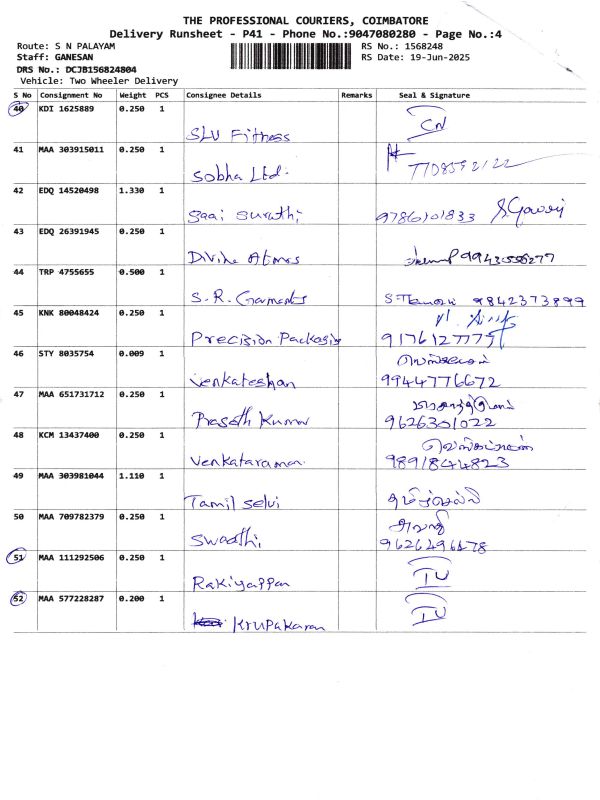 THE PROFESSIONAL COURIERS, COIMBATORE
Delivery Runsheet - P41 - Phone No.:9047080280 - Page No.:4
Route: S N PALAYAM RS No.: 1568248
Staff: GANESAN RS Date: 19-Jun-2025
DRS No.: DCJB156824804
Vehicle: Two Wheeler Delivery
S No Consignment No Weight PCS Consignee Details Remarks Seal & Signature
40 KDI 1625889 0.250 1
SLV Fitness CN
41 MAA 303915011 0.250 1
Sobha Ltd. 7708592122
42 EDQ 14520498 1.330 1
Saai Surathi 9786101833 S.Gowri
43 EDQ 26391945 0.250 1
Divine Atmos
44 TRP 4755655 0.500 1
S.R. Garments 9842373899
45 KNK 80048424 0.250 1
Precision Packaging
46 STY 8035754 0.009 1
Venkateshan 9944776672
47 MAA 651731712 0.250 1
Prasath Kumar 9626301022
48 KCM 13437400 0.250 1
Venkataraman 9891844823
49 MAA 303981044 1.110 1
Tamil Selvi தமிழ்செல்வி
50 MAA 709782379 0.250 1
Swathi
51 MAA 111292506 0.250 1
Rakiyappan IU
52 MAA 577228287 0.200 1
Krupakaran IU